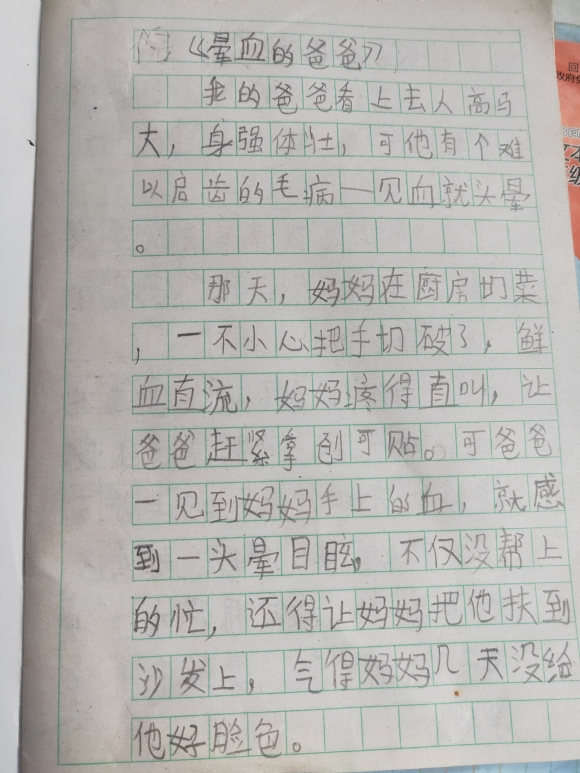 《晕血的爸爸》
我的爸爸看上去人高马
大，身强体壮，可他有个难
以启齿的毛病一见血就头晕
。
那天，妈妈在厨房切菜
，一不小心把手切破了，鲜
血直流，妈妈疼得直叫，让
爸爸赶紧拿创可贴。可爸爸
一见到妈妈手上的血，就感
到一头晕目眩，不仅没帮上
的忙，还得让妈妈把他扶到
沙发上，气得妈妈几天没给
他好脸色。